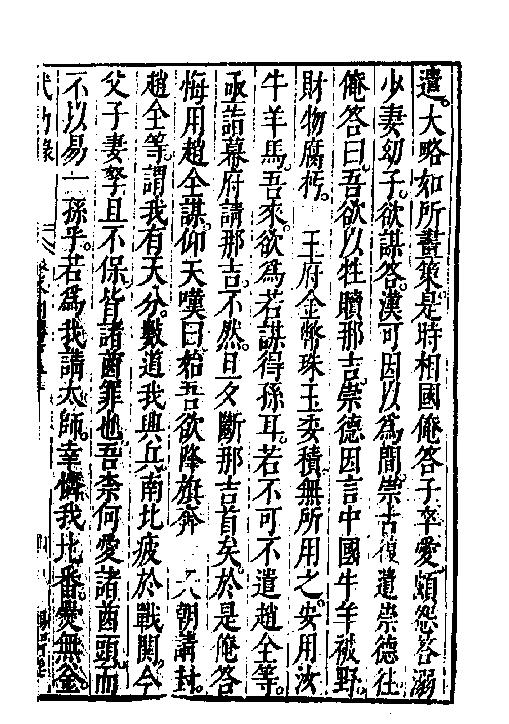 遣大略如所畫策是時相國俺答子辛愛頗怨答溺
少妻幼子欲謀答漢可因以為間崇古復遣崇德往
俺答曰吾欲以牲贖那吉崇德因言中國牛羊被野
財物腐朽 王府金幣珠玉委積無所用之安用汝
牛羊馬吾來欲為若謀得孫耳若不可不遣趙全等
亟詣幕府請那吉不然旦夕斷那吉首矣於是俺答
悔用趙全謀仰天嘆曰始吾欲降旗奔 天朝請封
趙全等謂我有天分數道我與兵南北疲於戰鬪今
父子妻孥且不保皆諸酋罪也吾柰何愛諸酋頭而
不以易一孫乎若為我請太師幸憐我北番爨無釜